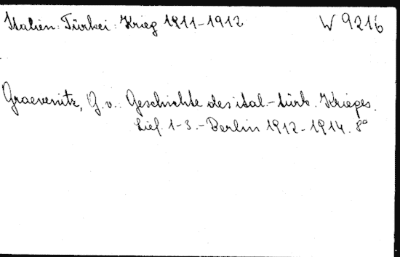 Italien: Türkei: Krieg 1911-1912 W 9216
Graevenitz, G. v.: Geschichte des ital.-türk. Krieges.
Lief. 1-3. - Berlin 1912-1914. 8°